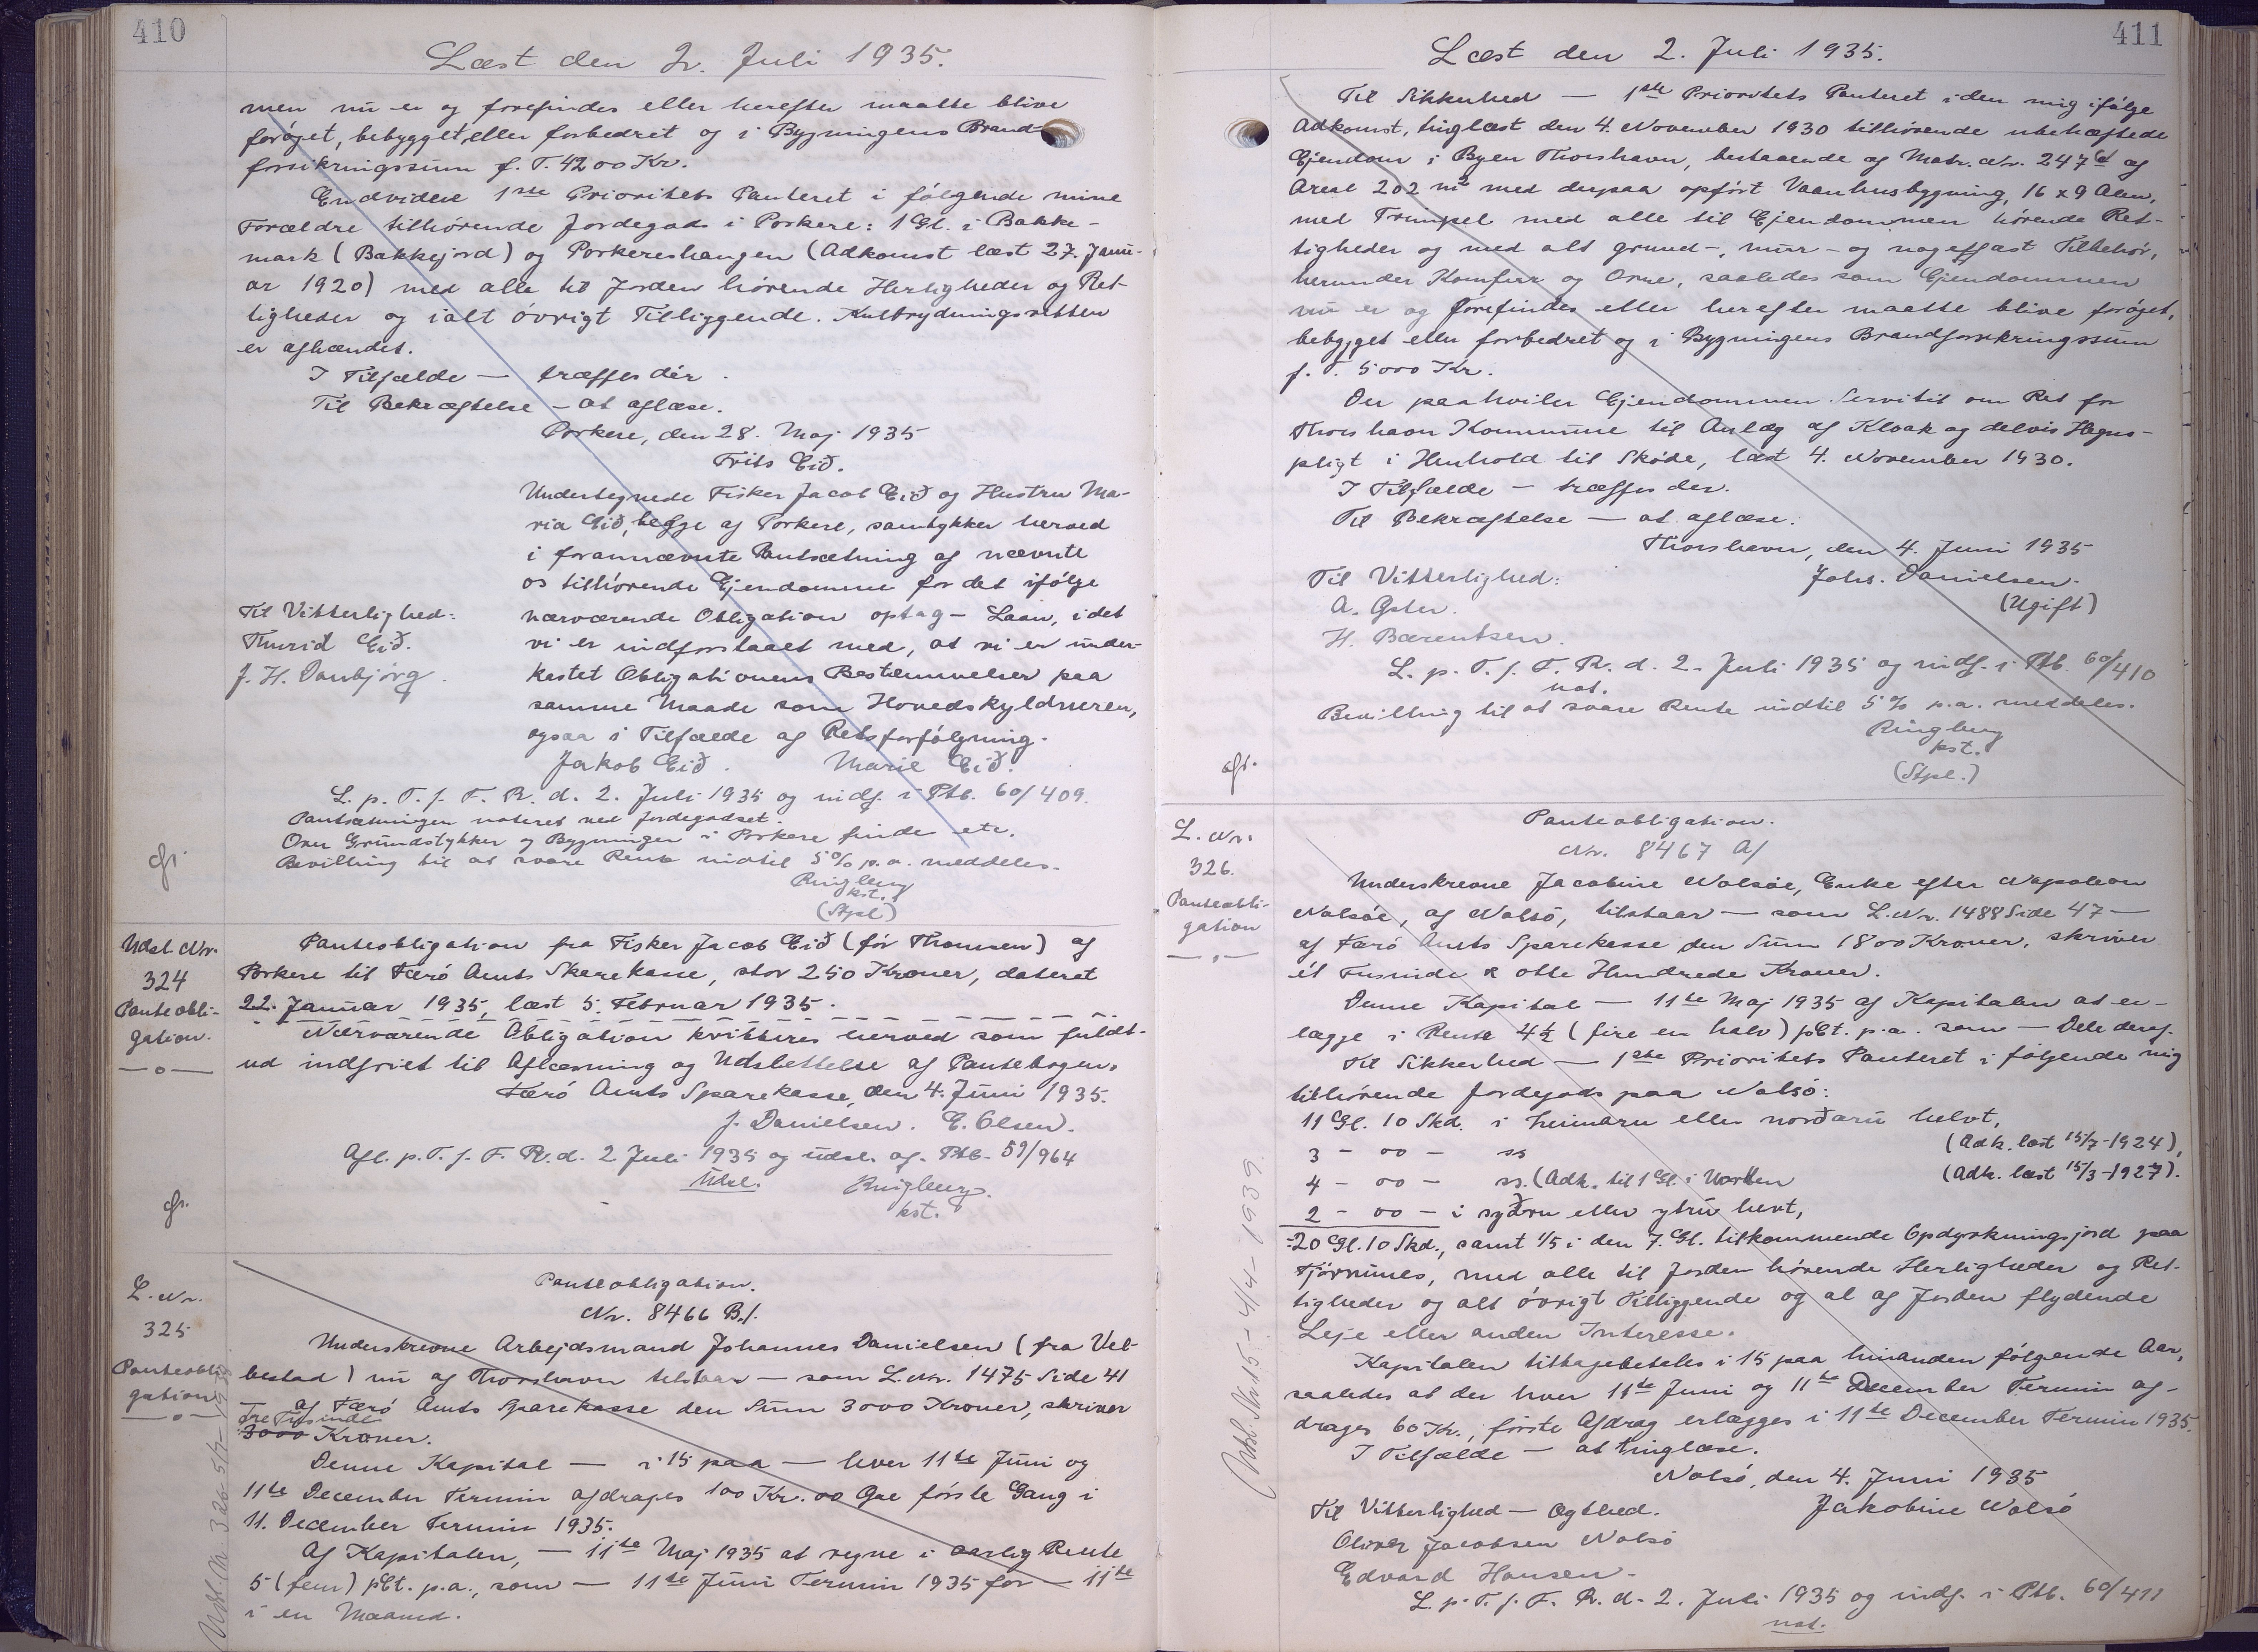 410
Læst den 2. Juli 1935.
men nu er og forefindes eller herefter maatte blive
forøget, bebygget, eller forbedret og i Bygningens Brand-
forsikringssum f. T. 4200 Kr.
Endvidere 1ste Prioritets Panteret i følgende mine
Forældre tilhørende Jordegods i Porkere: 1 Gl. i Bakke-
mark (Bakkejord) og Porkereshaugen (Adkomst læst 27. Janu-
ar 1920) med alle til Jorden hørende Herligheder og Ret-
tigheder og ialt øvrigt Tilliggende. Kulbrydningsretten
er afhændet.
I Tilfælde — træffes dér.
Til Bekræftelse — at aflæse.
Porkere, den 28. Maj 1935
Frits Eið.
Undertegnede Fisker Jacob Eið og Hustru Ma-
ria Eið, begge af Porkere, samtykker herved
i forannævnte Pantsætning af nævnte
os tilhørende Ejendomme for det ifølge
Til Vitterlighed: nærværende Obligation optag- Laan, idet
Thurid Eið. vi er indforstaaet med, at vi er under-
J. H. Danbjørg. kastet Obligationens Bestemmelser paa
samme Maade som Hovedskyldneren,
ogsaa i Tilfælde af Retsforfølgning.
Jakob Eið. Marie Eið.
L. p. T. f. F. R. d. 2. Juli 1935 og indf. i Ptb. 60/409.
Pantsætningen noteret ved Jordegodset.
Over Grundstykker og Bygninger i Porkere findes etc.
Bevilling til at svare Rente indtil 5% p.a. meddeles.
Ringberg
kst.
(Stpl)
Udsl. Nr.
324
Panteobli-
gation.
Panteobligation fra Fisker Jacob Eið (før Thomsen) af
Porkere til Færø Amts Sparekasse, stor 250 Kroner, dateret
22. Januar 1935, læst 5. Februar 1935.
Nærværende Obligation kvitteres herved som fuldt-
ud indfriet til Aflæsning og Udslettelse af Pantebogen.
Færø Amts Sparekasse, den 4. Juni 1935.
J. Danielsen. E. Olsen.
Afl. p. T. f. F. R. d. 2. Juli 1935 og udsl. af Ptb. 59/964
Udsl. Ringberg.
kst.
L. Nr.
325
Panteobli-
gation
Panteobligation.
Nr. 8466 B./.
Underskrevne Arbejdsmand Johannes Danielsen (fra Vel-
bestad) nu af Thorshavn tilstaar — som L. Nr. 1475 Side 41
— af Færø Amts Sparekasse den Sum 3000 Kroner, skriver
Tre Tusinde
3000 Kroner.
Denne Kapital — i 15 paa — hver 11te Juni og
11te December Termin afdrages 100 Kr. 00 Øre første Gang i
11. December Termin 1935.
Af Kapitalen, — 11te Maj 1935 at regne i aarlig Rente
5 (fem) pCt. p.a., som — 11te Juni Termin 1935 for — 11te
i en Maaned.
411
Læst den 2. Juli 1935.
Til Sikkerhed — 1ste Prioritets Panteret i den mig ifølge
Adkomst, tinglæst den 4. November 1930 tilhørende ubehæftede
Ejendom i Byen Thorshavn, bestaaende af Matr. Nr. 247 d af
Areal 202 m² med derpaa opført Vaanhusbygning, 16 x 9 Alen,
med Trimpel med alle til Ejendommen hørende Ret-
tigheder og med alt grund-, mur- og nagelfast Tilbehør,
herunder Komfur og Ovne, saaledes som Ejendommen
nu er og forefindes eller herefter maatte blive forøget,
bebygget eller forbedret og i Bygningens Brandforsikringssum
f. T. 5000 Kr.
Der paahviler Ejendommen Servitut om Ret for
Thorshavn Kommune til Anlæg af Kloak og delvis Hegns-
pligt i Henhold til Skøde, læst 4. November 1930.
I Tilfælde — træffes der.
Til Bekræftelse — at aflæse.
Thorshavn, den 4. Juni 1935
Til Vitterlighed: Johs. Danielsen.
A. (Ugift)
H. Bærentsen.
L. p. T. f. F. R. d. 2. Juli 1935 og indf. i Ptb. 60/410
not.
Bevilling til at svare Rente indtil 5% p.a. meddeles.
Ringberg
kst.
(Stpl.)
L. Nr.
326.
Panteobli-
gation
Panteobligation.
Nr. 8467 A/
Underskrevne Jacobine Nolsøe, Enke efter Napoleon
Nolsøe, af Nolsø, tilstaar — som L. Nr. 1488 Side 47 —
af Færø Amts Sparekasse den Sum 1800 Kroner, skriver
ét Tusinde & otte Hundrede Kroner.
Denne Kapital — 11te Maj 1935 af Kapitalen at er-
lægge i Rente 4½ (fire en halv) pCt. p.a. som — Dele deraf.
Til Sikkerhed — 1ste Prioritets Panteret i følgende mig
tilhørende Jordegods paa Nolsø:
11 Gl. 10 Skd. i heimaru eller norðaru helvt,
3 - 00 - ss (Adk. læst 15/7-1924),
4 - 00 - ss. (Adk. til 1 Gl. i (Adk. læst 15/3-1927).
2 - 00 - i syðru eller ytru helvt,
=20 Gl. 10 Skd., samt 1/5 i den 7. Gl. tilkommende Opdyrkningsjord paa
Tjørnunes, med alle til Jorden hørende Herligheder og Ret-
tigheder og alt øvrigt Tilliggende og al af Jorden flydende
Leje eller anden Interesse.
Kapitalen tilbagebetales i 15 paa hinanden følgende Aar,
saaledes at der hver 11te Juni og 11te December Termin af-
drages 60 Kr., første Afdrag erlægges i 11te December Termin 1935.
I Tilfælde — at tinglæse.
Nolsø, den 4. Juni 1935
Til Vitterlighed — Ægthed. Jakobine Nolsø
Oliver Jacobsen Nolsø
Edvard Hansen.
L. p. T. f. F. R. d. 2. Juli 1935 og indf. i Ptb. 60/411
not.
Udsl. Nr. 15 - 4/4 - 1939